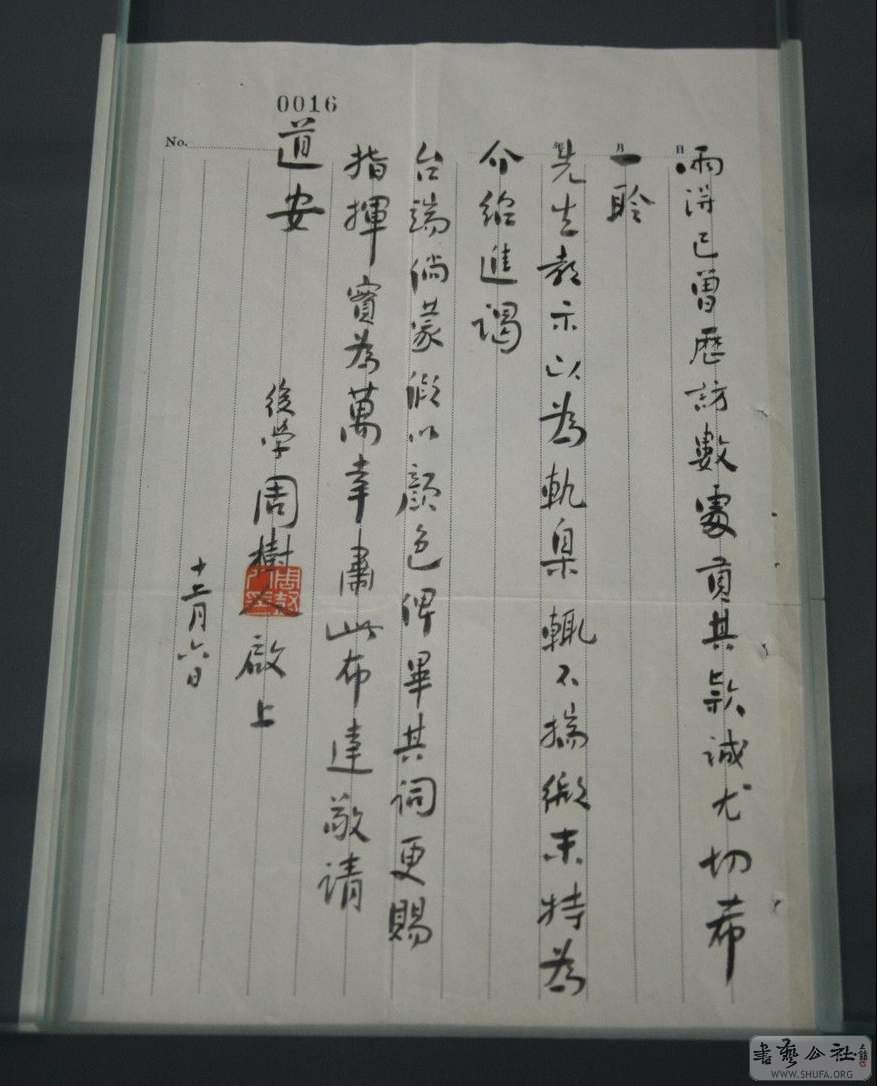 0016
No.
月
日
已曾歷訪數處貢其款誠尤切希
一聆
先生教示以為軌臬輒不揣微末特為
介紹進謁
台端倘蒙假以顏色俾畢其詞更賜
指揮實為萬幸肅此布達敬請
道安
後學周樹人啟上
十二月六日
書藝公社
WWW.SHUFA.ORG